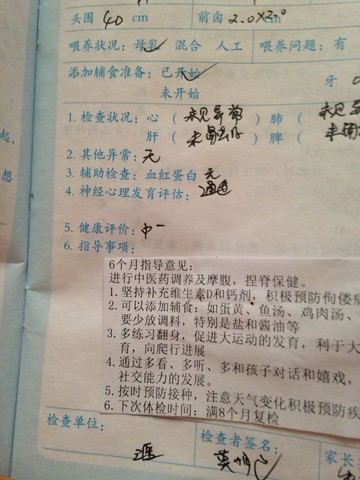 头围 40 cm 前囟 2.0×2.0 cm
喂养状况：母乳 混合 人工 喂养问题：有
添加辅食准备：已开始 牙
未开始
1. 检查状况：心（未见异常）肺（未见异
起， 肝（未触及） 脾（未触
2. 其他异常：无
想 3. 辅助检查：血红蛋白 无
4. 神经心理发育评估：通过
5. 健康评价：中一
6. 指导事项：
6个月指导意见：
进行中医药调养及摩腹，捏脊保健。
1. 坚持补充维生素D和钙剂，积极预防佝偻
2. 可以添加辅食：如蛋黄、鱼汤、鸡肉汤、
要少放调料，特别是盐和酱油等
3. 多练习翻身，促进大运动的发育，利于大
育，向爬行进展
4. 通过多看、多听、多和孩子对话和嬉戏，
社交能力的发展。
5. 按时预防接种，注意天气变化积极预防疾
6. 下次体检时间：满8个月复检
检查单位： 检查者签名： 家长